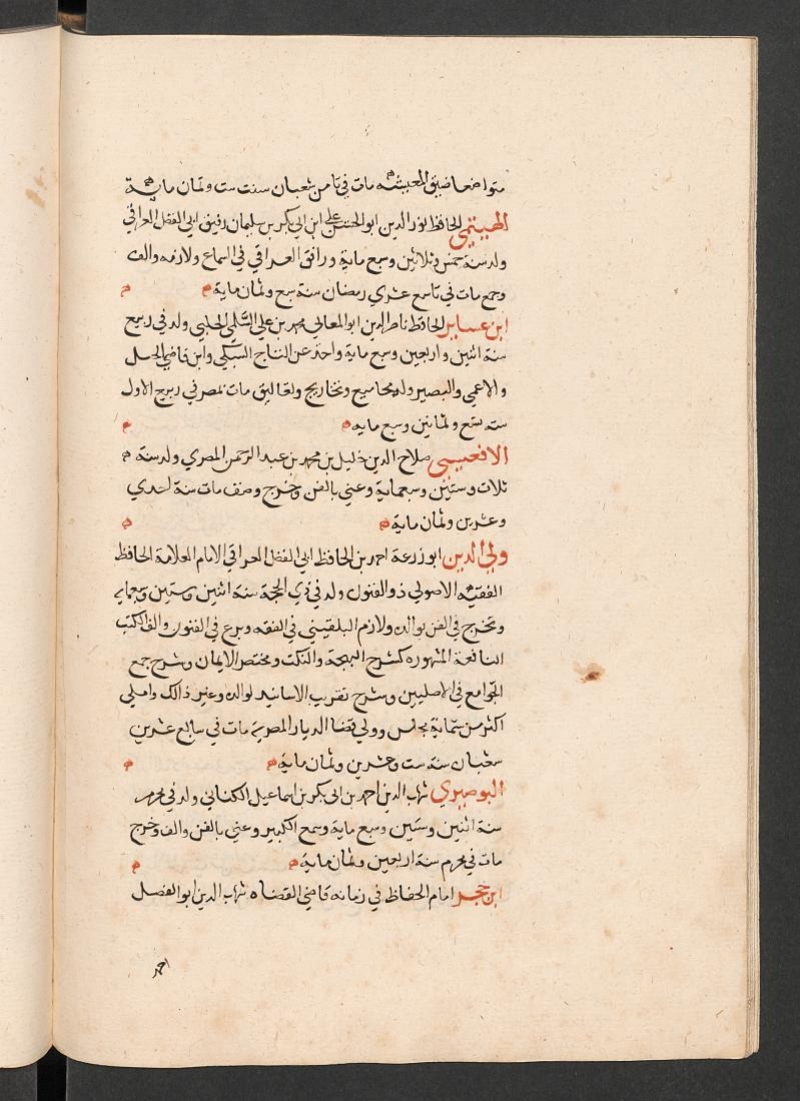 متواضعا ضيق المعيشه مات في ثامن شعبان سنت ست وثمان ماية
الهيتمي الحافظ نور الدين ابو الحسن علي ابن ابي بكر بن سليمان رفيق ابي الفضل العراقي
ولد سنة خمس وثلاثين وسبع ماية ورافق العراقي في السماع ولازمه والف
وجمع مات في تاسع عشري رمضان سنة سبع وثمان ماية
ابن عساير الحافظ ناصر الدين ابو المعالي محمد بن علي السلمي الحلبي ولد في ربيع
سنة اثنين واربعين وسبع ماية واخذ عن التاج السبكي وابن قاضي الجبل
والاعمى والبصير وله مجاميع وتخاريج وتعاليق مات بمصر في ربيع الاول
سنه تسع وثمانين وسبع مايه
الاقفهسي صلاح الدين خليل بن محمد بن عبد الرحمن المصري ولد سنة
ثلاث وستين وسبعماية وعني بالفن وخرج وصنف مات سنة احدي
وعشرين وثمان ماية
ولي الدين ابو زرعة احمد بن الحافظ ابي الفضل العراقي الامام العلامة الحافظ
الفقيه الاصولي ذو الفنون ولد في ذي الحجة سنة اثنين وستين وسبعمايه
وتخرج في الفن بوالده ولازم البلقيني في الفقه وبرع في الفنون والف الكتب
النافعة المشهوره كشرح البهجة والنكت ومختصر الايمان وشرح جمع
الجوامع في الاصليين وشرح تقريب الاسانيد لوالده وغير ذالك واملى
اكثر من ستماية مجلس وولي قضا الديار المصرية مات في سابع عشرين
شعبان سنة ست وعشرين وثمان ماية
البوصيري شهاب الدين احمد بن ابي بكر بن اسماعيل الكناني ولد في محرم
سنة اثنين وستين وسبع ماية وسمع الكبير وعني بالفن والف وخرج
مات في محرم سنة اربعين وثمان ماية
ابن حجر امام الحفاظ في زمانه قاضي القضاه شهاب الدين ابو الفضل
احمد